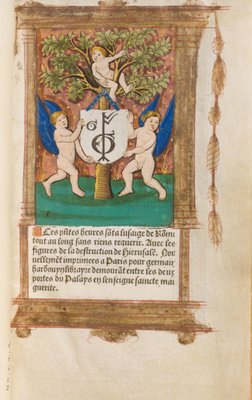 Ces pñtes heures sõt a lusaige de Rõm
tout au long sans riens requerir. Avec les
figures de la destruction de Hierusalẽ. Nou
uellemẽt imprimees a Paris pour germain
hardouyn libraire demourãt entre les deux
portes du Palays en lenseigne saincte mar
guerite.